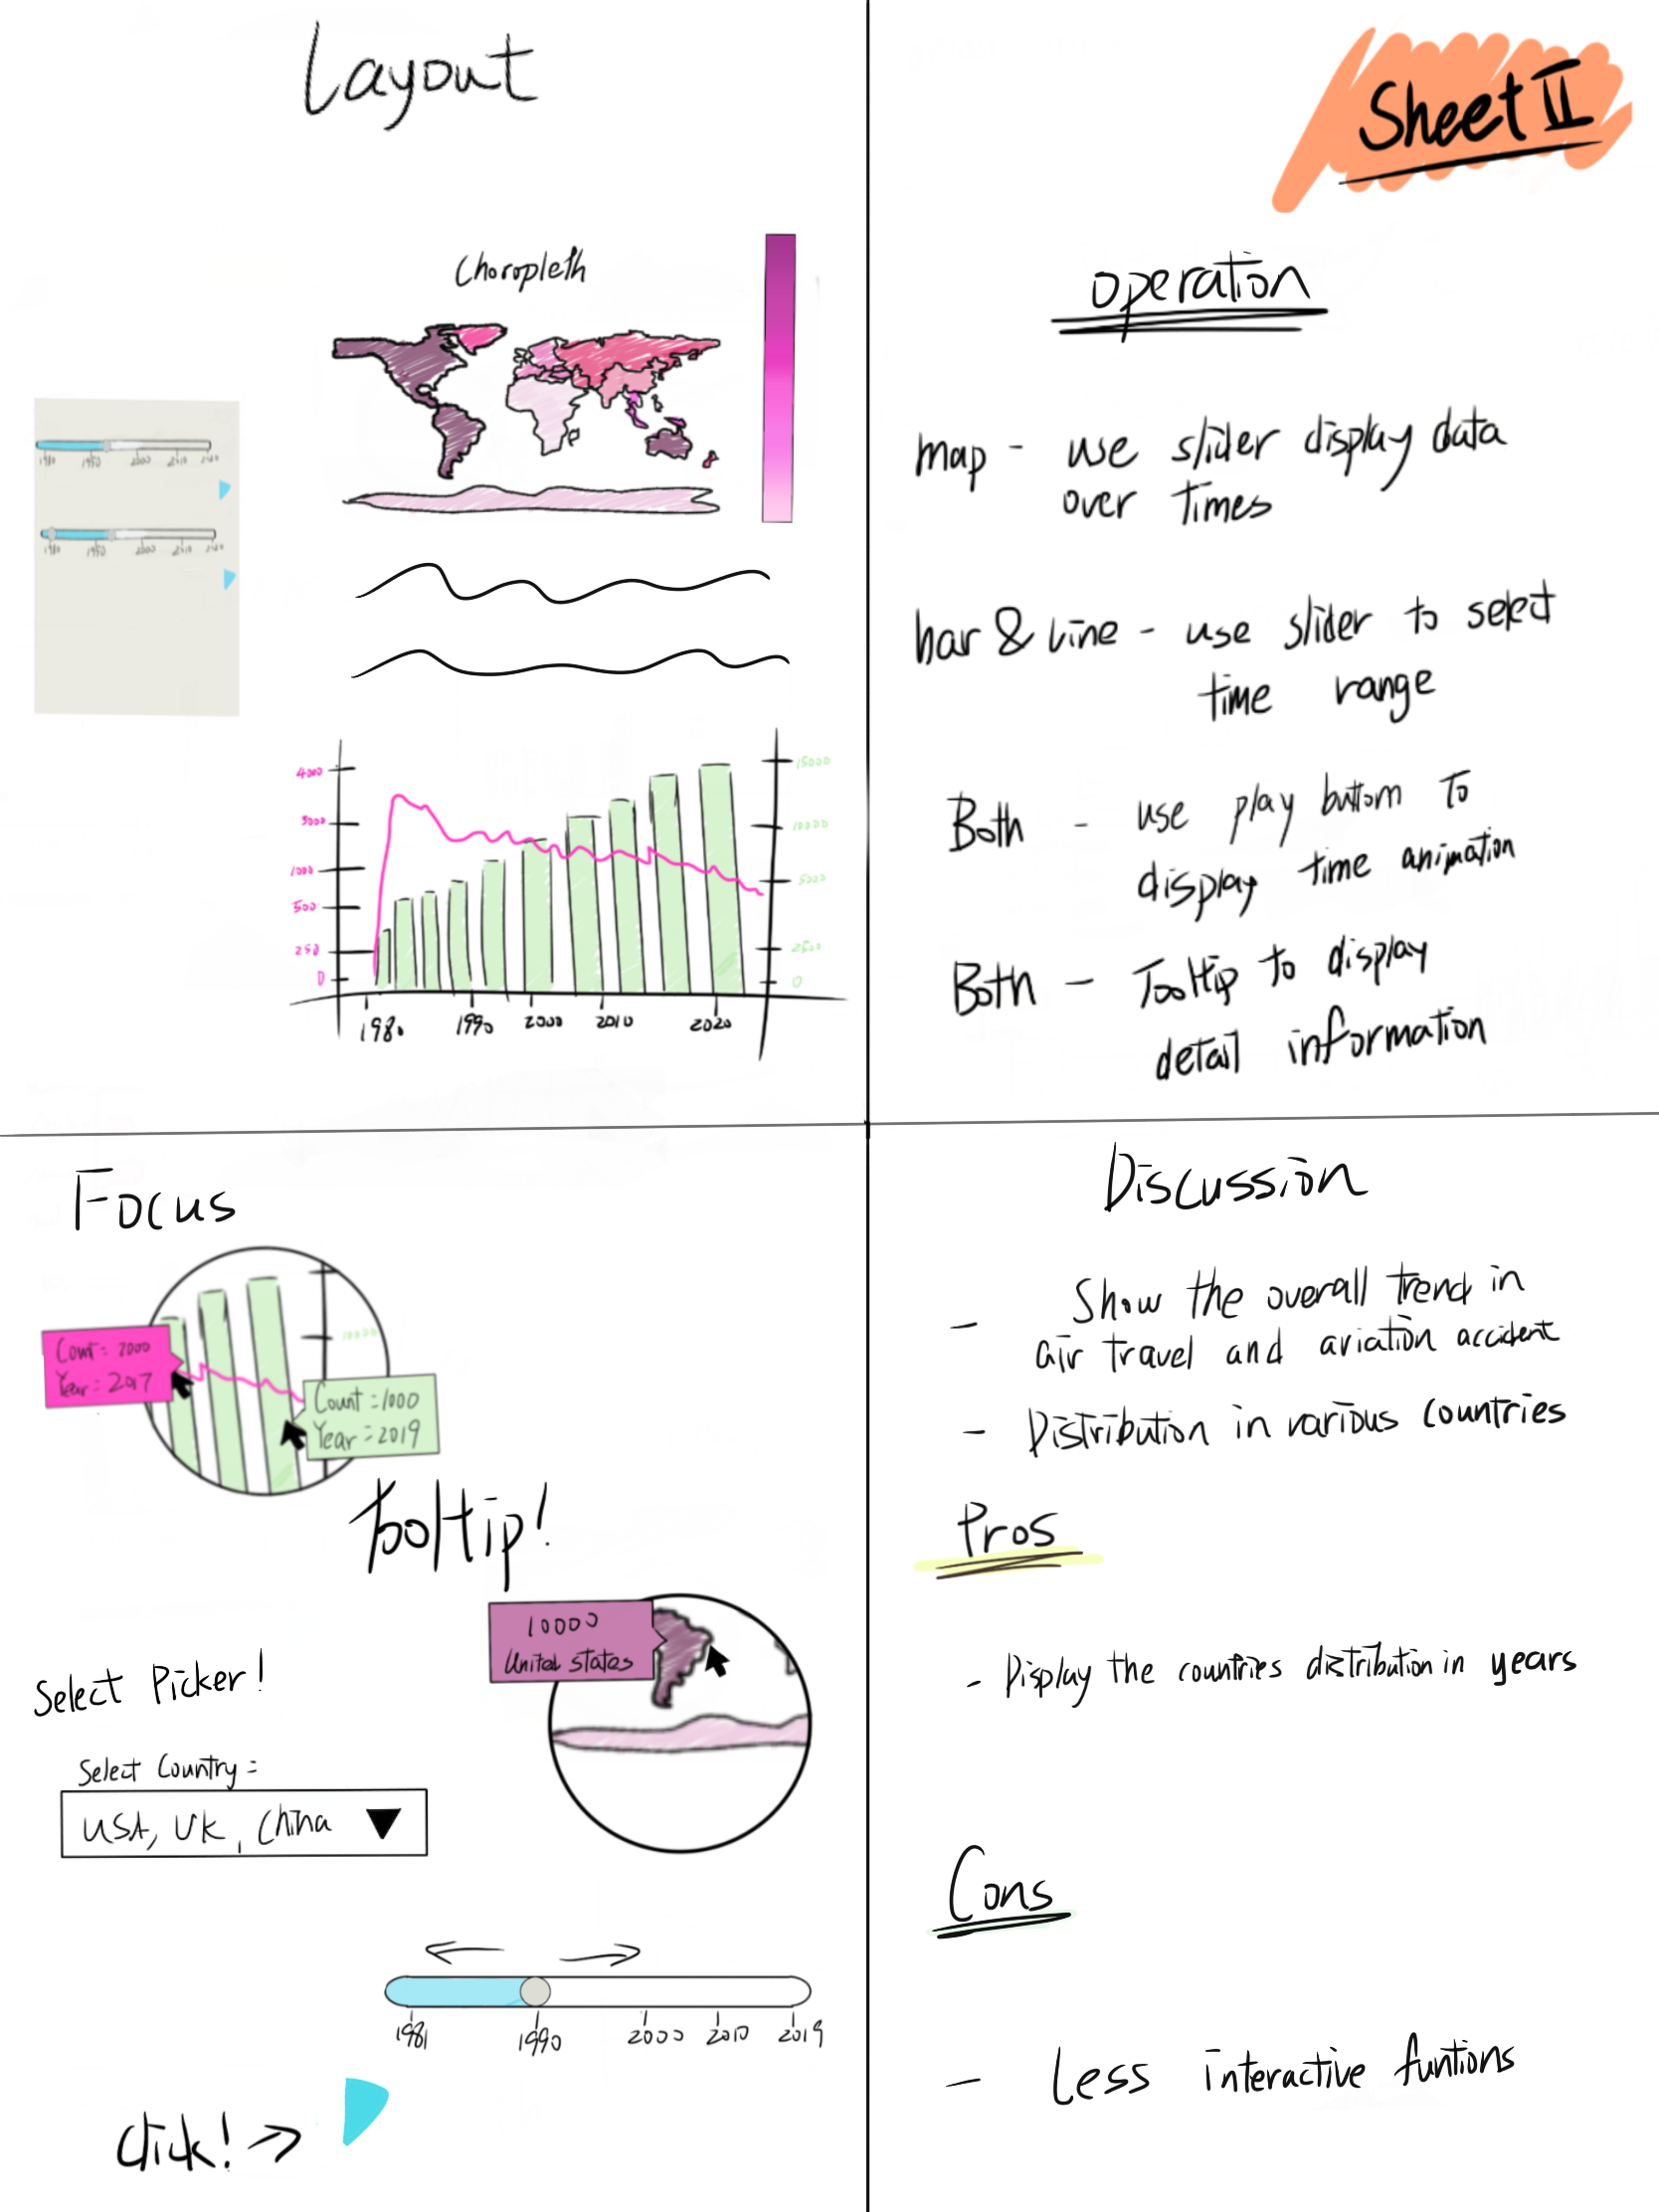 Layout
Choropleth
1980 1990 2000 2010 2020
1980 1990 2000 2010 2020
4000
3000
1000
500
250
0
15000
10000
5000
2500
0
1980 1990 2000 2010 2020
Sheet II
operation
map - use slider display data
over times
bar & line - use slider to select
time range
Both - use play buttom to
display time animation
Both - Tooltip to display
detail information
Focus
10000
Count = 2000
Year = 2017
Count = 1000
Year = 2019
Tooltip!
10000
United states
Select Picker!
Select Country =
USA, UK, China
1981 1990 2000 2010 2019
click! →
Discussion
- Show the overall trend in
air travel and aviation accident
- Distribution in various countries
Pros
- Display the countries distribution in years
Cons
- Less interactive funtions